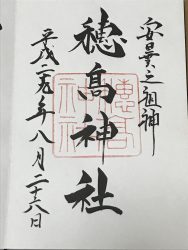 安曇之祖神
穂髙神社
平成二九年八月二十六日